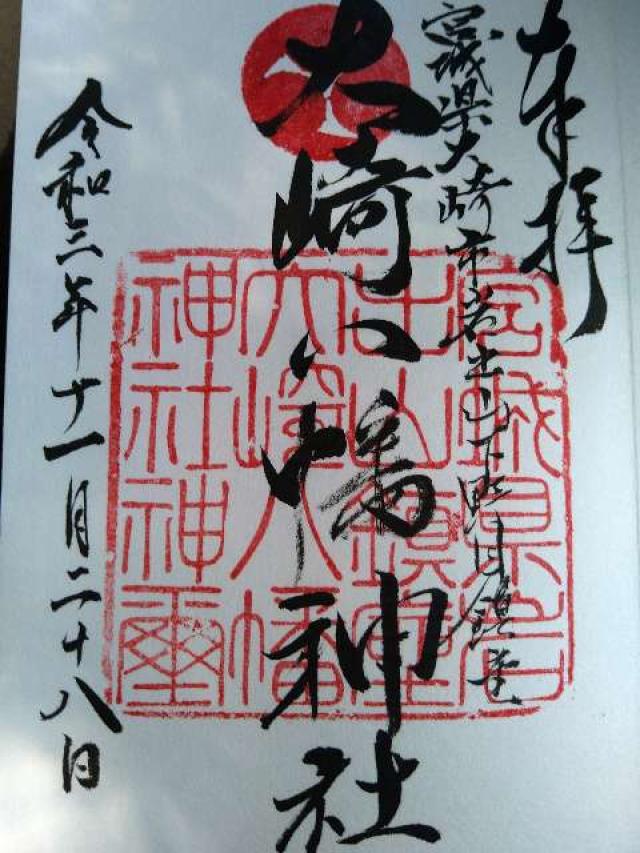 奉拝
宮城県大崎市岩出山下野目鎮守
大崎八幡神社
令和三年十一月二十八日
宮城県岩
出山鎮座
大崎八幡
神社神璽